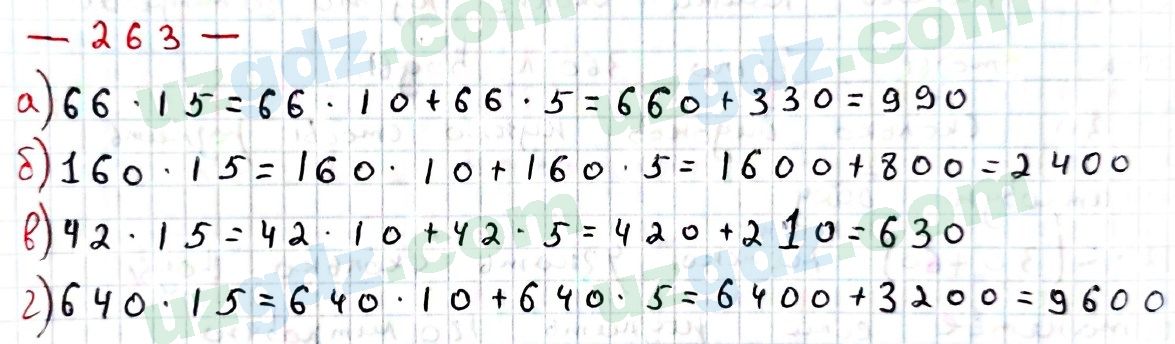 — 263 —
а) 66 · 15 = 66 · 10 + 66 · 5 = 660 + 330 = 990
б) 160 · 15 = 160 · 10 + 160 · 5 = 1600 + 800 = 2400
в) 42 · 15 = 42 · 10 + 42 · 5 = 420 + 210 = 630
г) 640 · 15 = 640 · 10 + 640 · 5 = 6400 + 3200 = 9600
uzgdz.com
uzgdz.com
uzgdz.com
uzgdz.com